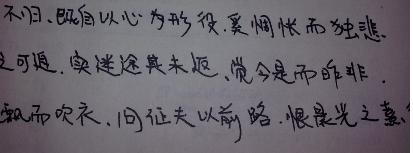 不归、既自以心为形役、奚惆怅而独悲、
之可追、实迷途其未远、觉今是而昨非、
飘而吹衣、问征夫以前路、恨晨光之熹、